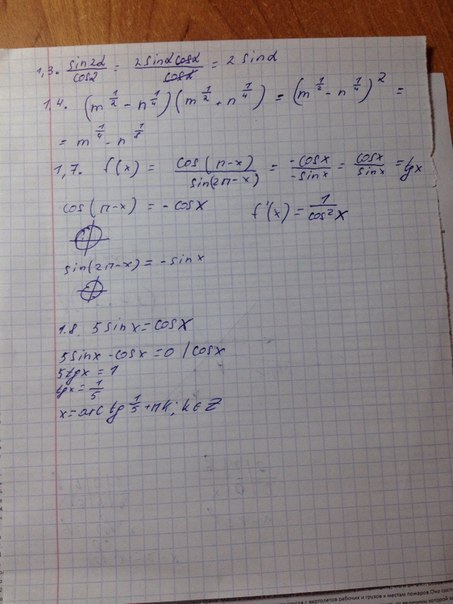 1,3. sin2α/cosα = 2sinα cosα/cosα = 2 sinα
1.4. (m^1/2 - n^1/4)(m^1/2 + n^1/4) = (m^1/2 - n^1/4)^2 =
= m^1/4 - n^1/8
1,7. f(x) = cos(π-x)/sin(2π-x) = -cosx/-sinx = cosx/sinx = tgx
cos(π-x) = -cosx f'(x) = 1/cos²x
sin(2π-x) = -sinx
1.8 5sinx = cosx
5sinx - cosx = 0 /cosx
5tgx = 1
tgx = 1/5
x = arctg 1/5 + πk; k∈Z